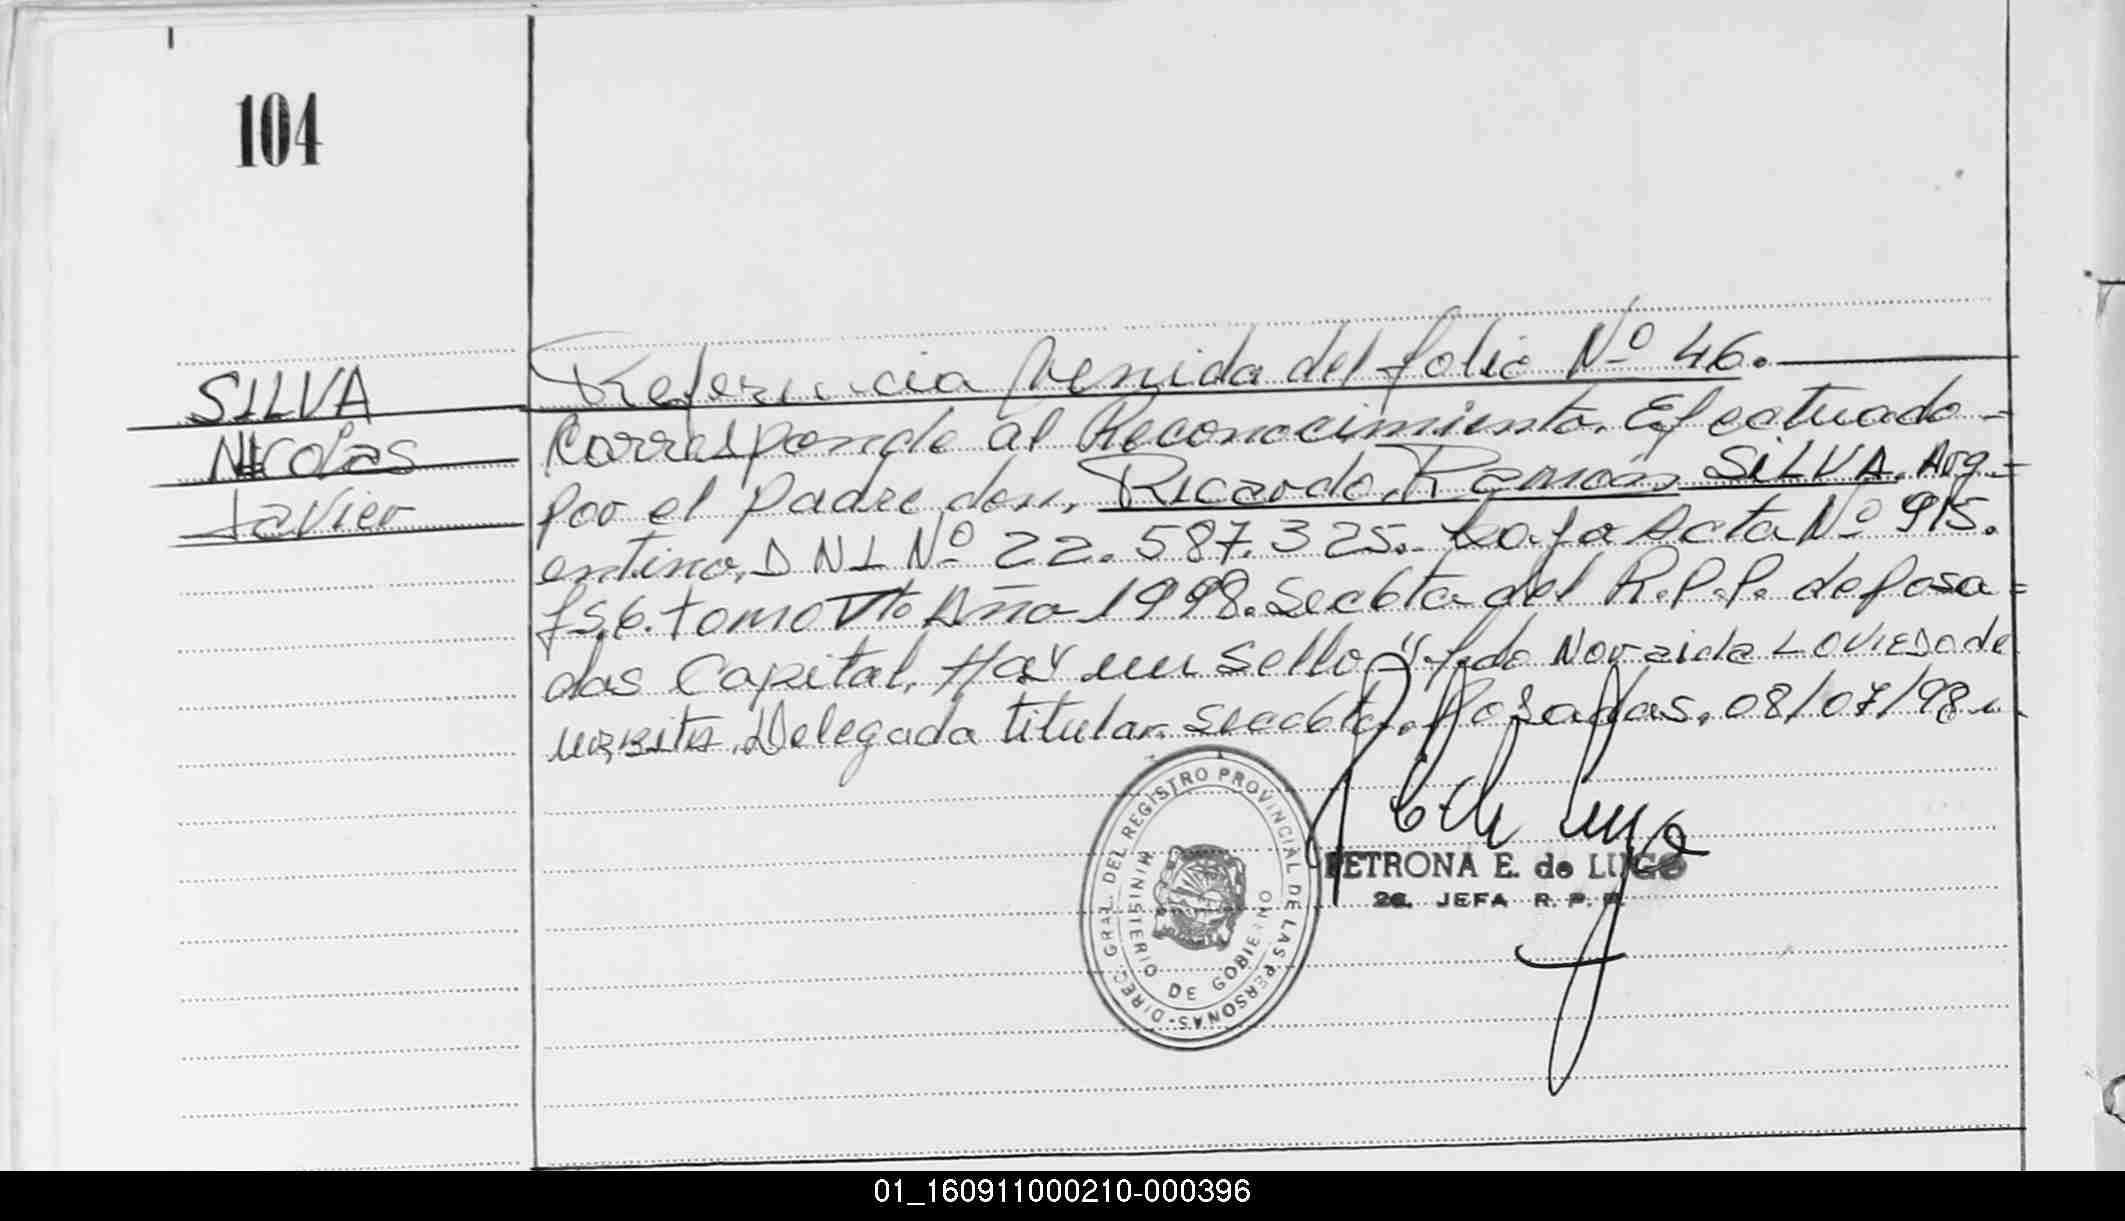 104
SILVA
Nicolas
Javier
Referencia Venida del folio Nº 46.
Corresponde al Reconocimiento. Efectuado-
por el padre don, Ricardo, Ramón, SILVA. Arg=
entino, DNI Nº 22.587.325.- bajo Acta Nº 915.
fs.6. tomo Vto Año 1998. Secbta del R.P.P. de Posa=
das Capital. Hay un sello "fdo Noraida L OVIEDO de
URBITA. Delegada titular. Secbta. Posadas, 08/07/98
DIREC. GRAL. DEL REGISTRO PROVINCIAL DE LAS PERSONAS-
MINISTERIO DE GOBIERNO
PETRONA E. de LUGO
2a. JEFA R. P. P.
01_160911000210-000396